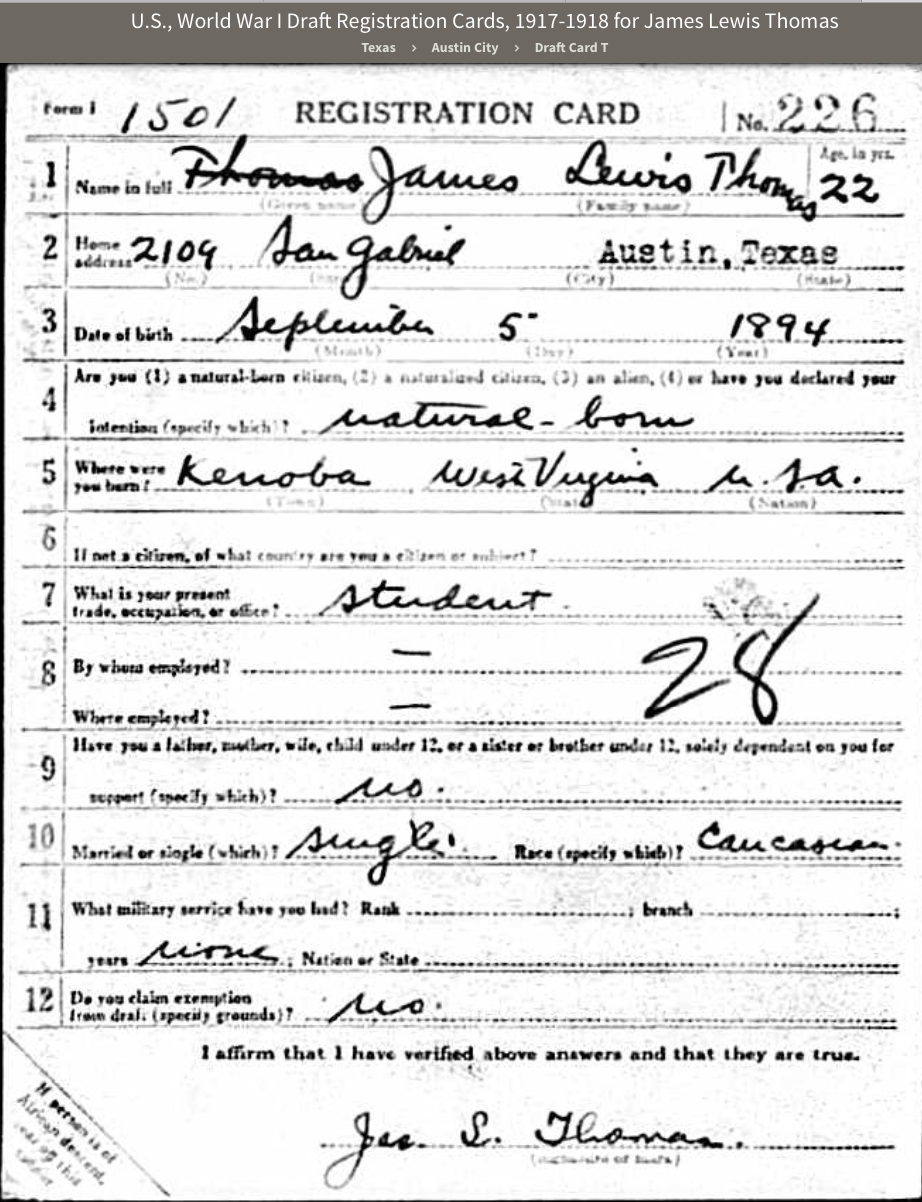 U.S., World War I Draft Registration Cards, 1917-1918 for James Lewis Thomas
Texas > Austin City > Draft Card T
Form 1 1501 REGISTRATION CARD No. 226
1 Name in full Thomas James Lewis Thomas Age, in yrs. 22
(Given name) (Family name)
2 Home address 2109 San Gabriel Austin, Texas
(No.) (City) (State)
3 Date of birth September 5 1894
(Month) (Day) (Year)
4 Are you (1) a natural-born citizen, (2) a naturalized citizen, (3) an alien, (4) or have you declared your
intention (specify which)? natural-born
5 Where were you born? Kenoba West Virginia U.S.A.
(Town) (State) (Nation)
6 If not a citizen, of what country are you a citizen or subject?
7 What is your present
trade, occupation, or office? student
28
8 By whom employed? —
Where employed? —
9 Have you a father, mother, wife, child under 12, or a sister or brother under 12, solely dependent on you for
support (specify which)? no.
10 Married or single (which)? single. Race (specify which)? Caucasian.
11 What military service have you had? Rank ; branch ;
years none ; Nation or State
12 Do you claim exemption
from draft (specify grounds)? no.
I affirm that I have verified above answers and that they are true.
Jas. L. Thomas.
(Signature or mark)
If person is of
African descent,